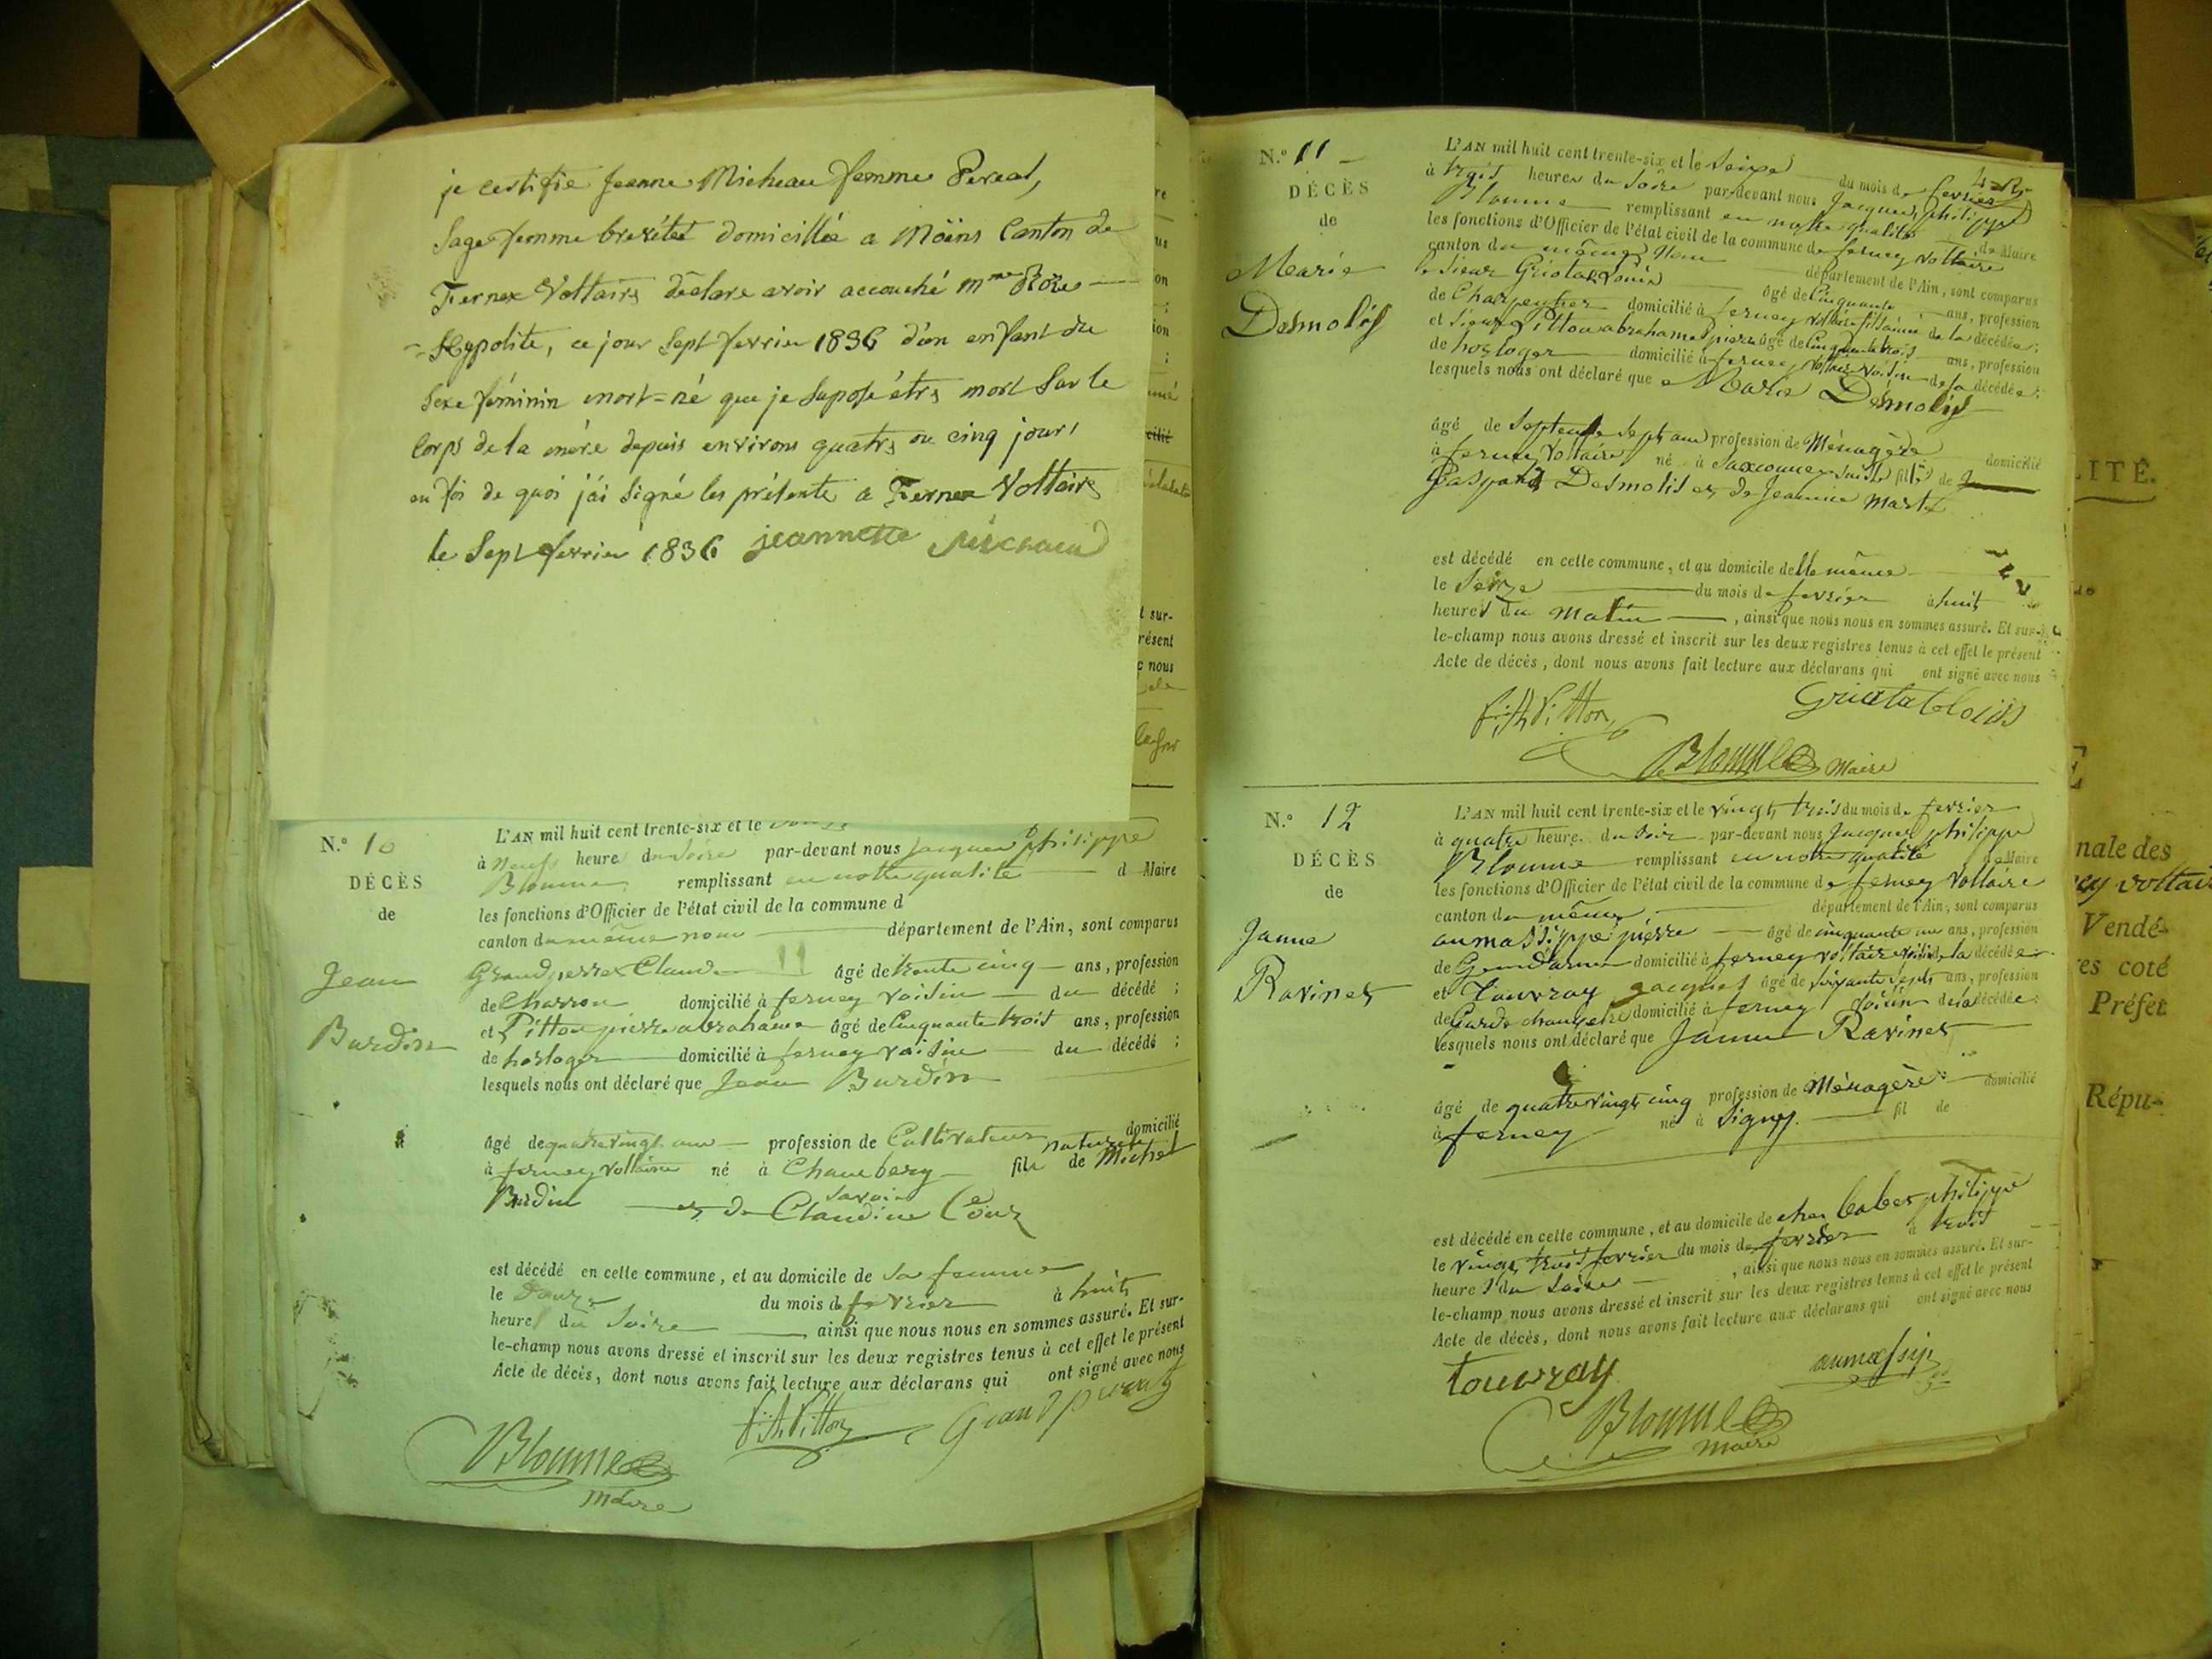 je certifie Jeanne Micheau femme
Sage femme brevétée domicillée a Moëns Canton de
Fernex Voltaire déclare avoir accouché Mme Rose
Hypolite, ce jour Sept fevrier 1836 d'un enfant du
Sexe féminin mort=né que je Supose être mort Sur le
Corps de la mére depuis environs quatre ou cinq jours
en foi de quoi j'ai Signé les présente a Fernex Voltaire
le Sept fevrier 1836 jeannette
N.º 10
DÉCÈS
de
Jean
Burdin
L'AN mil huit cent trente-six et le
à Neuf heure du Soire par-devant nous Jacques Philippe
Bloume remplissant en notre qualité d Maire
les fonctions d'Officier de l'état civil de la commune d
canton du même nom département de l'Ain, sont comparus
Grandperret Claude âgé de trente cinq ans, profession
de Charron domicilié à ferney voisin du décédé ;
et Pitton pierre abrahame âgé de Cinquante trois ans, profession
de horloger domicilié à ferney voisin du décédé ;
lesquels nous ont déclaré que Jean Burdin
âgé de quatrevingt ans profession de Cultivateur domicilié
naturel
à ferney voltaire né à Chambery fils de Michel
Savoie
Burdin et de Claudine
est décédé en cette commune, et au domicile de Sa femme
le Douze du mois de fevrier à huit
heures du Soire ainsi que nous nous en sommes assuré. Et sur-
le-champ nous avons dressé et inscrit sur les deux registres tenus à cet effet le présent
Acte de décès, dont nous avons fait lecture aux déclarans qui ont signé avec nous
Pitton Grandperret
Bloume
Maire
N.º 11
DÉCÈS
de
Marie
Desmolis
L'AN mil huit cent trente-six et le Seize du mois de fevrier
à trois heures du Soire par-devant nous Jacques philippe
Bloume remplissant en notre qualité de Maire
les fonctions d'Officier de l'état civil de la commune de ferney voltaire
canton du même Nom département de l'Ain, sont comparus
le Sieur Louis âgé de Cinquante ans, profession
de Charpentier domicilié à ferney voltaire de la décédée ;
et Sieur Pitton abrahame pierre âgé de Cinquante trois ans, profession
de horloger domicilié à ferney voltaire voisin de la décédée ;
lesquels nous ont déclaré que Marie Desmolis
âgé de Septente Sept ans profession de Ménagère domicilié
à ferney Voltaire né à Saxconnex fille de
Gaspard Desmolis et de Jeannine
est décédé en cette commune, et au domicile delle même
le Seize du mois de fevrier à huit
heures du Matin, ainsi que nous nous en sommes assuré. Et sur-
le-champ nous avons dressé et inscrit sur les deux registres tenus à cet effet le présent
Acte de décès, dont nous avons fait lecture aux déclarans qui ont signé avec nous
Pitton
Bloume Maire
N.º 12
DÉCÈS
de
Janne
Ravinet
L'AN mil huit cent trente-six et le vingt trois du mois de fevrier
à quatre heure du Soir par-devant nous Jacques philippe
Bloume remplissant en notre qualité de Maire
les fonctions d'Officier de l'état civil de la commune de ferney Voltaire
canton du même département de l'Ain, sont comparus
pierre âgé de cinquante un ans, profession
de Gendarme domicilié à ferney voltaire voisin de la décédée
et Touvray Jacques âgé de Soixante Sept ans, profession
de Garde champetre domicilié à ferney Voisin de la décédée ;
lesquels nous ont déclaré que Janne Ravinet
âgé de quatrevingt cinq profession de Ménagère domicilié
à ferney né à Signy. fil de
est décédé en cette commune, et au domicile de chez philippe
le vingt trois fevrier du mois de fevrier à trois
heures du Soire, ainsi que nous nous en sommes assuré. Et sur-
le-champ nous avons dressé et inscrit sur les deux registres tenus à cet effet le présent
Acte de décès, dont nous avons fait lecture aux déclarans qui ont signé avec nous
Touvray
Bloume
Maire
LITÉ.
nale des
Vendé-
es coté
Préfet
Répu-